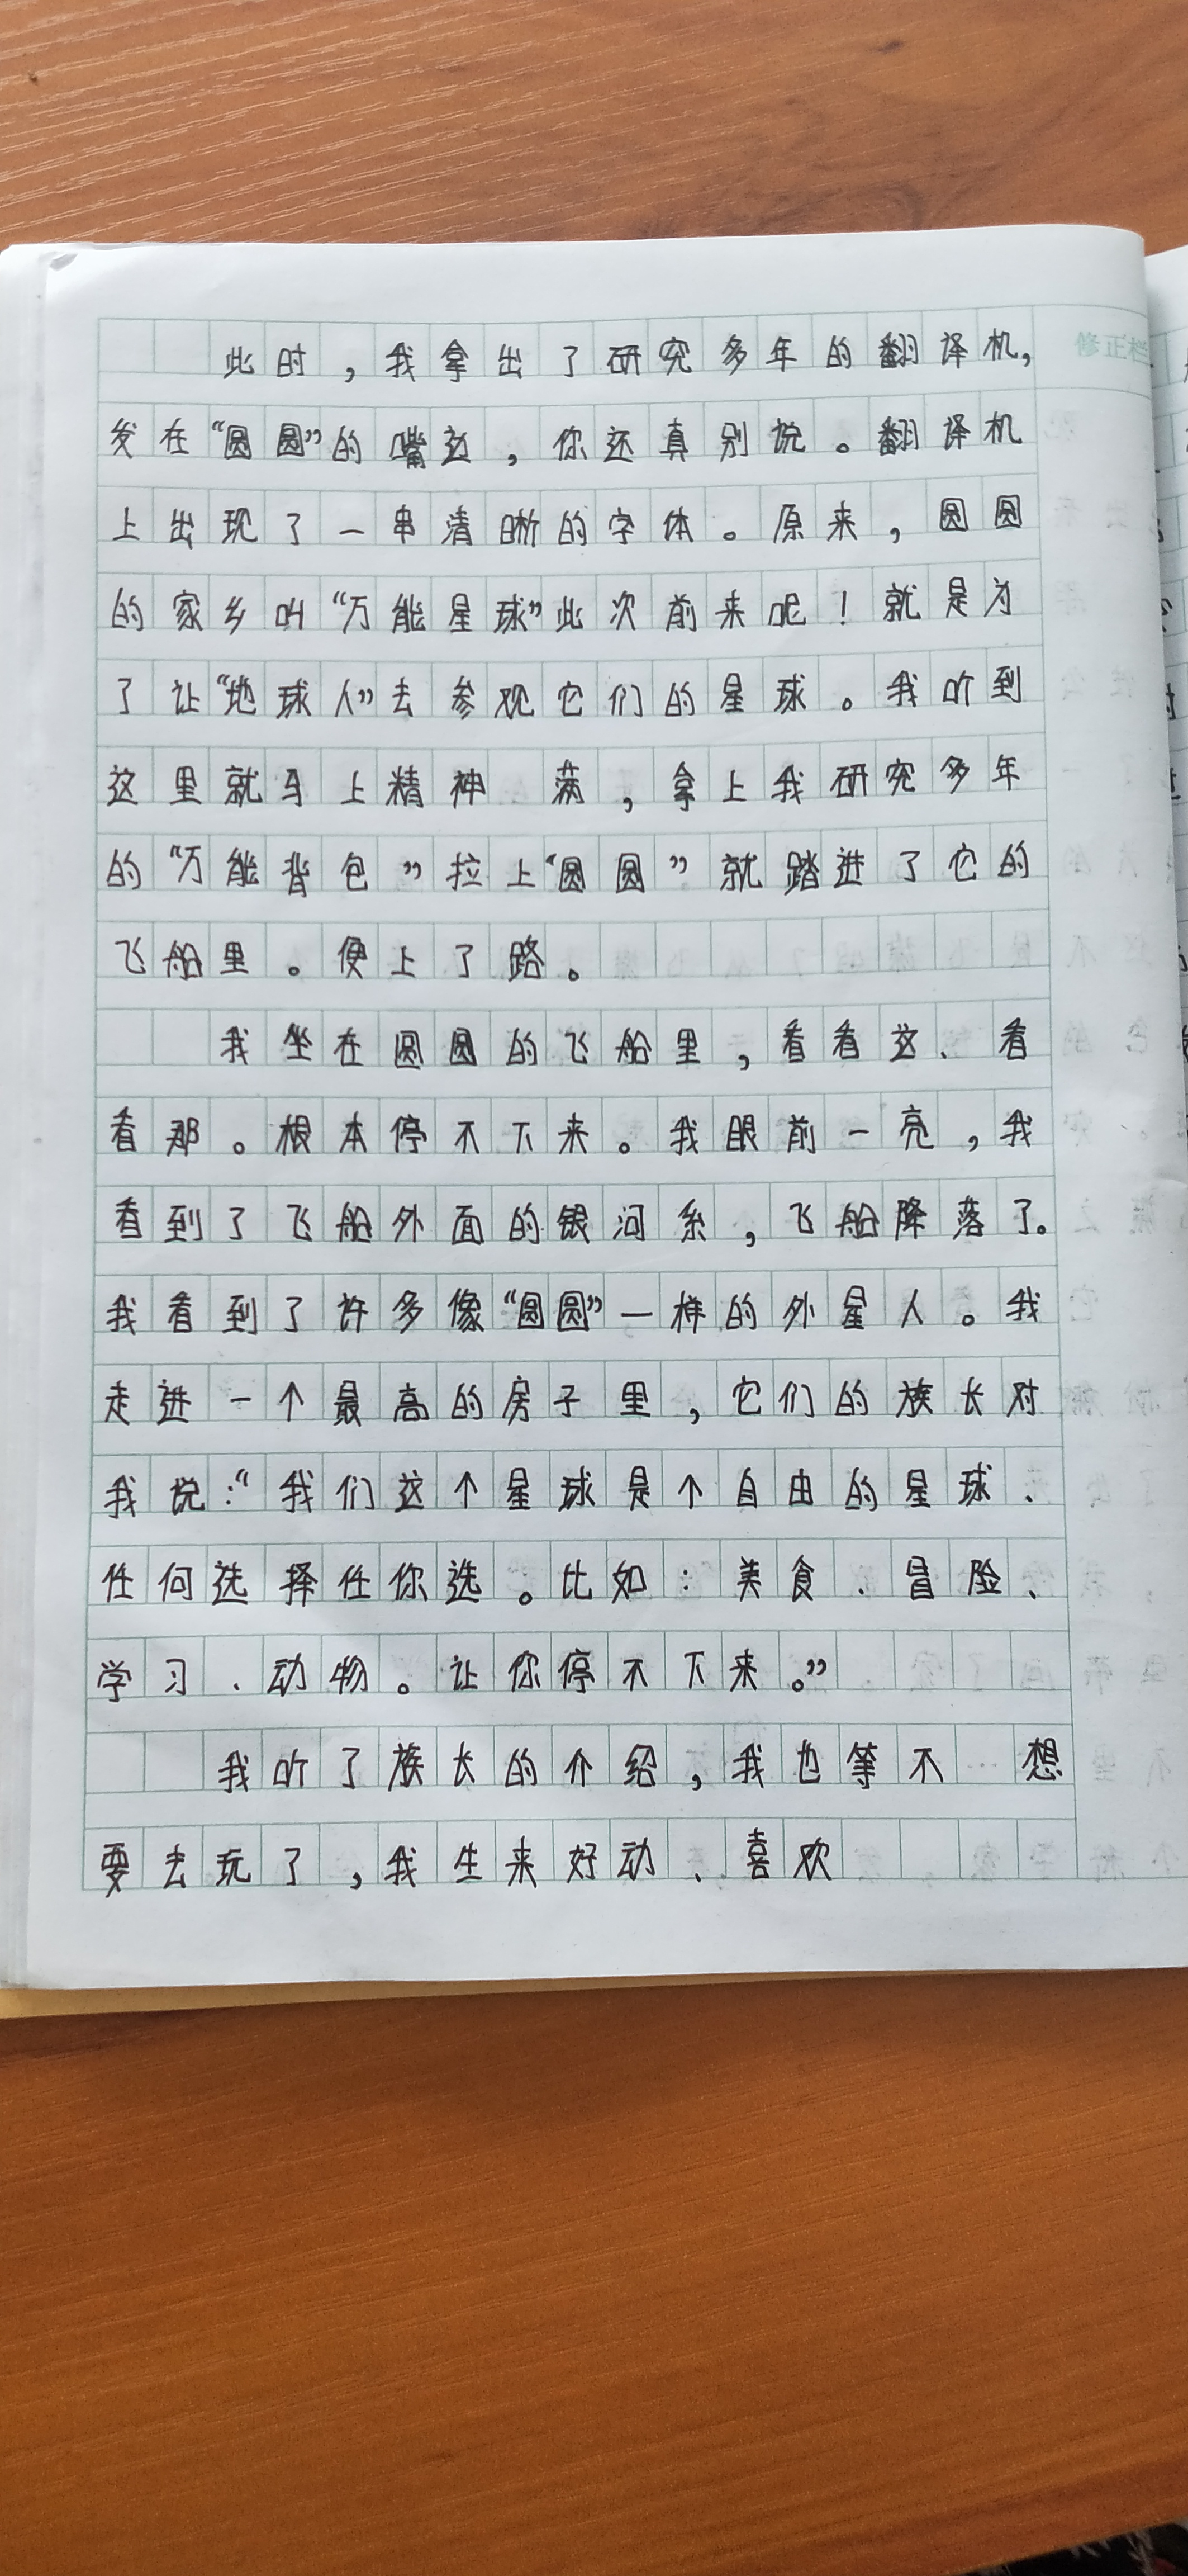 修正栏
此时，我拿出了研究多年的翻译机，
发在“圆圆”的嘴边，你还真别说。翻译机
上出现了一串清晰的字体。原来，圆圆
的家乡叫“万能星球”此次前来呢！就是为
了让“地球人”去参观它们的星球。我听到
这里就马上精神 满，拿上我研究多年
的“万能背包”拉上“圆圆”就踏进了它的
飞船里。便上了路。
我坐在圆圆的飞船里，看看这、看
看那。根本停不下来。我眼前一亮，我
看到了飞船外面的银河系，飞船降落了。
我看到了许多像“圆圆”一样的外星人。我
走进一个最高的房子里，它们的族长对
我说：“我们这个星球是个自由的星球、
任何选择任你选。比如：美食、冒险、
学习、动物。让你停不下来。”
我听了族长的介绍，我也等不 想
要去玩了，我生来好动、喜欢